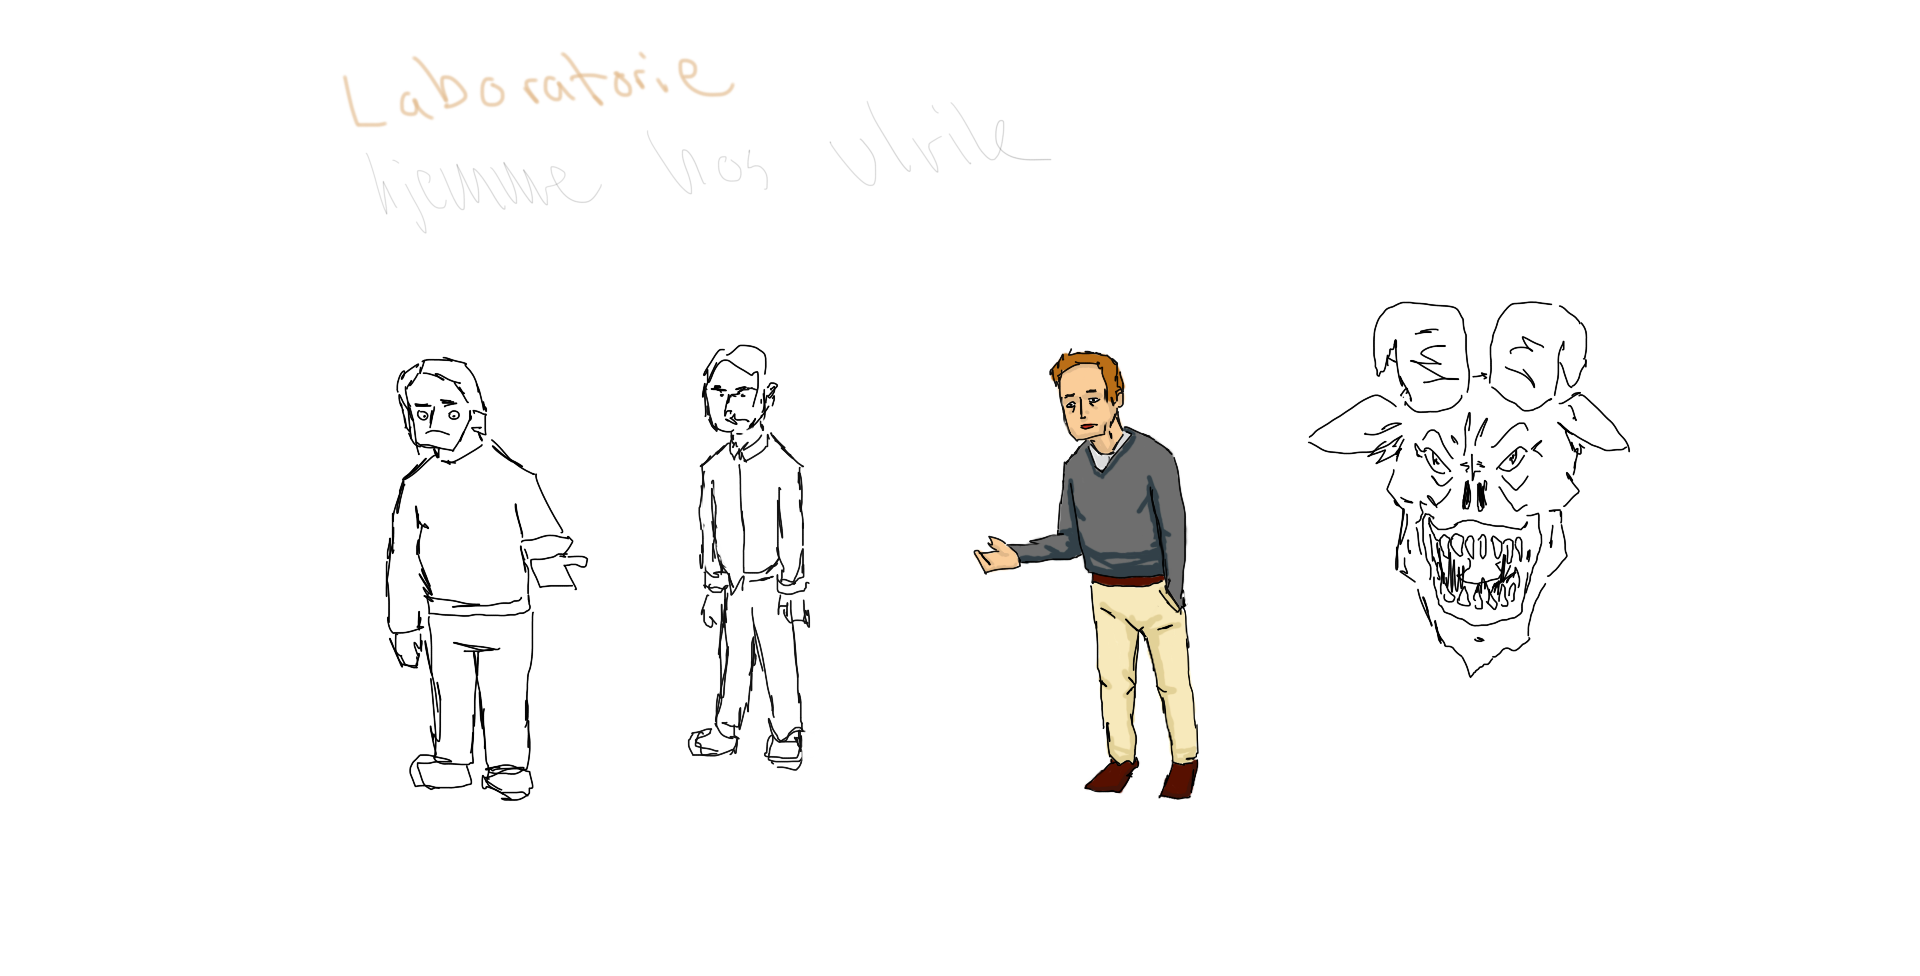 Laboratorie
hjemme hos ulrik